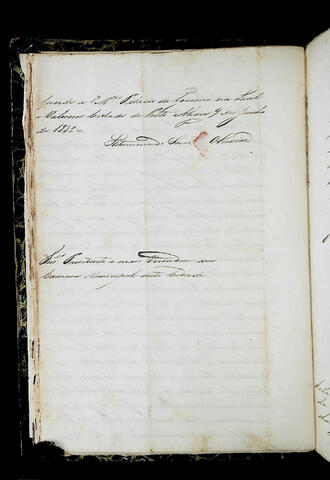 Guarde a V. Mces. Palacio do Governo na Leal
e Valorosa Cidade de Porto Alegre 9 de Junho
de 1842
Saturnino de Souza e Oliveira
Snres. Presidente e mais Vereadores da
Camara Municipal desta Cidade